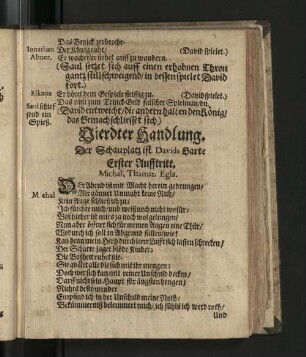 Das Genick zerbreche.
Jonathan Der König ruht / (David spielet.)
Abner. Er wachet / er siehet auff zu wandern.
(Saul setzet sich auff einen erhabnen Thron
gantz stillschweigend / in dessen spielet David
fort.)
Elkana Er höret dein Gespiele fleissig zu. (David spielet.)
Saul schies Das ein zum Druck Geld falscher Spielman / du.
send ein (David entweicht / die andern halten den König /
Spieß. das Gemach schliesset sich)
Vierdter Handlung.
Der Schauplatz ist Davids Garte
Erster Aufftritt.
Michal, Thamar. Egla.
Michal Der Abend ist mit Macht herein gedrungen /
Mir gönnet Unmuht keine Ruh /
Kein Auge schließ ich zu /
Ich fürchte mich / und weiß noch nicht wofür:
Biß hieher ist mir's ja noch wol gelungen /
Nun aber öffnet sich für meinen Augen eine Thür /
Wodurch ich soll in Abgrund fallen / wie!
Kan denn mein Hertz durch leere Lufft sich lassen schrecken /
Der Schatte jaget blöde Kinder:
Die Boßheit ruhet nie.
Sie quälet alle die sich mit ihr mengen:
Doch wer sich kan mit reiner Unschuld decken /
Darff nicht sein Haupt für ängsten hengen /
Nichts desto minder
Empfind ich in der Unschuld meine Noth /
Bekümmerniß beklemmet mich / ich fühls ich werd roth /
Und